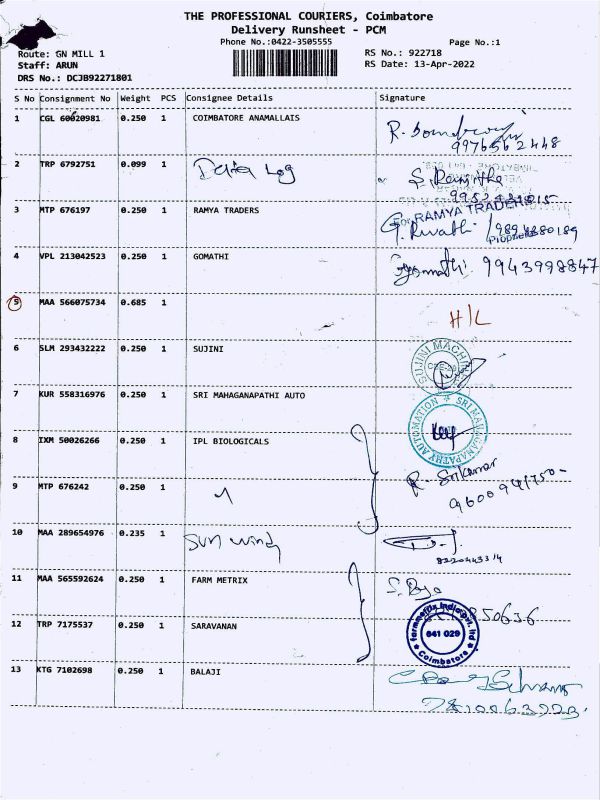 THE PROFESSIONAL COURIERS, Coimbatore
Delivery Runsheet - PCM
Phone No.:0422-3505555 Page No.:1
Route: GN MILL 1 RS No.: 922718
Staff: ARUN RS Date: 13-Apr-2022
DRS No.: DCJB92271801
S No Consignment No Weight PCS Consignee Details Signature
1 CGL 60020981 0.250 1 COIMBATORE ANAMALLAIS
9976562448
2 TRP 6792751 0.099 1 Data Log
S. Ranjitha
3 MTP 676197 0.250 1 RAMYA TRADERS For RAMYA TRADERS
G. Revathi
Proprietor
4 VPL 213042523 0.250 1 GOMATHI Gomathi. 9943998847
5 MAA 566075734 0.685 1 H/L
6 SLM 293432222 0.250 1 SUJINI SUJINI
7 KUR 558316976 0.250 1 SRI MAHAGANAPATHI AUTO SRI MAHAGANAPATHY AUTOMATION
8 IXM 50026266 0.250 1 IPL BIOLOGICALS
R. Srikumar
9 MTP 676242 0.250 1
10 MAA 289654976 0.235 1 Sun wind
8220443314
11 MAA 565592624 0.250 1 FARM METRIX S.
12 TRP 7175537 0.250 1 SARAVANAN 641 029 Coimbatore
13 KTG 7102698 0.250 1 BALAJI